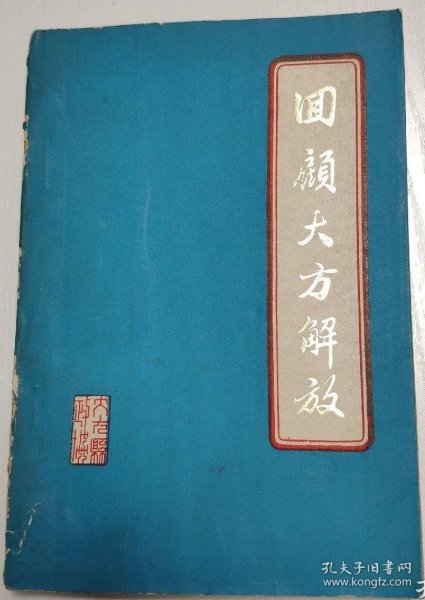 回顧大方解放
大方縣
政協
孔夫子旧书网
www.kongfz.com